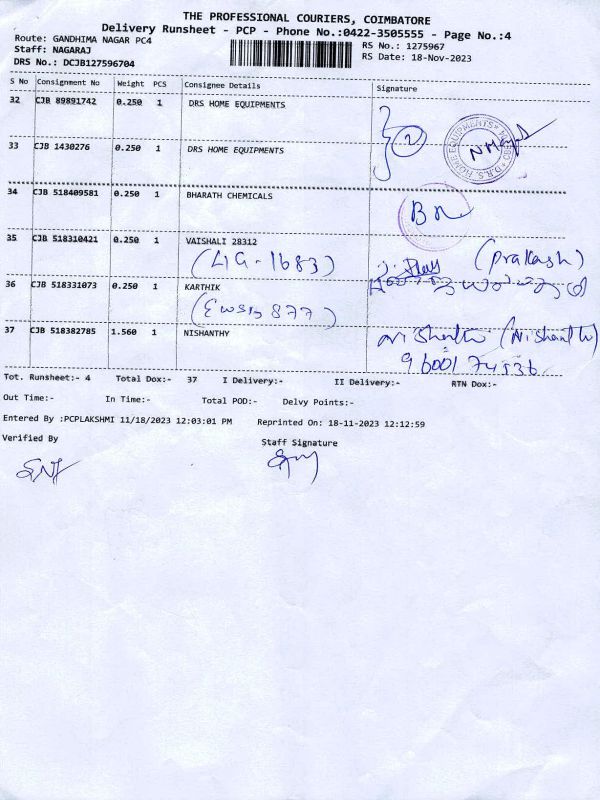 THE PROFESSIONAL COURIERS, COIMBATORE
Delivery Runsheet - PCP - Phone No.:0422-3505555 - Page No.:4
Route: GANDHIMA NAGAR PC4 RS No.: 1275967
Staff: NAGARAJ RS Date: 18-Nov-2023
DRS No.: DCJB127596704
S No Consignment No Weight PCS Consignee Details Signature
32 CJB 89891742 0.250 1 DRS HOME EQUIPMENTS
2
33 CJB 1430276 0.250 1 DRS HOME EQUIPMENTS
34 CJB 518409581 0.250 1 BHARATH CHEMICALS
35 CJB 518310421 0.250 1 VAISHALI 28312
(LIG-1683) (Prakash)
36 CJB 518331073 0.250 1 KARTHIK
(EWSB 877)
37 CJB 518382785 1.560 1 NISHANTHY
Tot. Runsheet:- 4 Total Dox:- 37 I Delivery:- II Delivery:- RTN Dox:-
Out Time:- In Time:- Total POD:- Delvy Points:-
Entered By :PCPLAKSHMI 11/18/2023 12:03:01 PM Reprinted On: 18-11-2023 12:12:59
Verified By Staff Signature